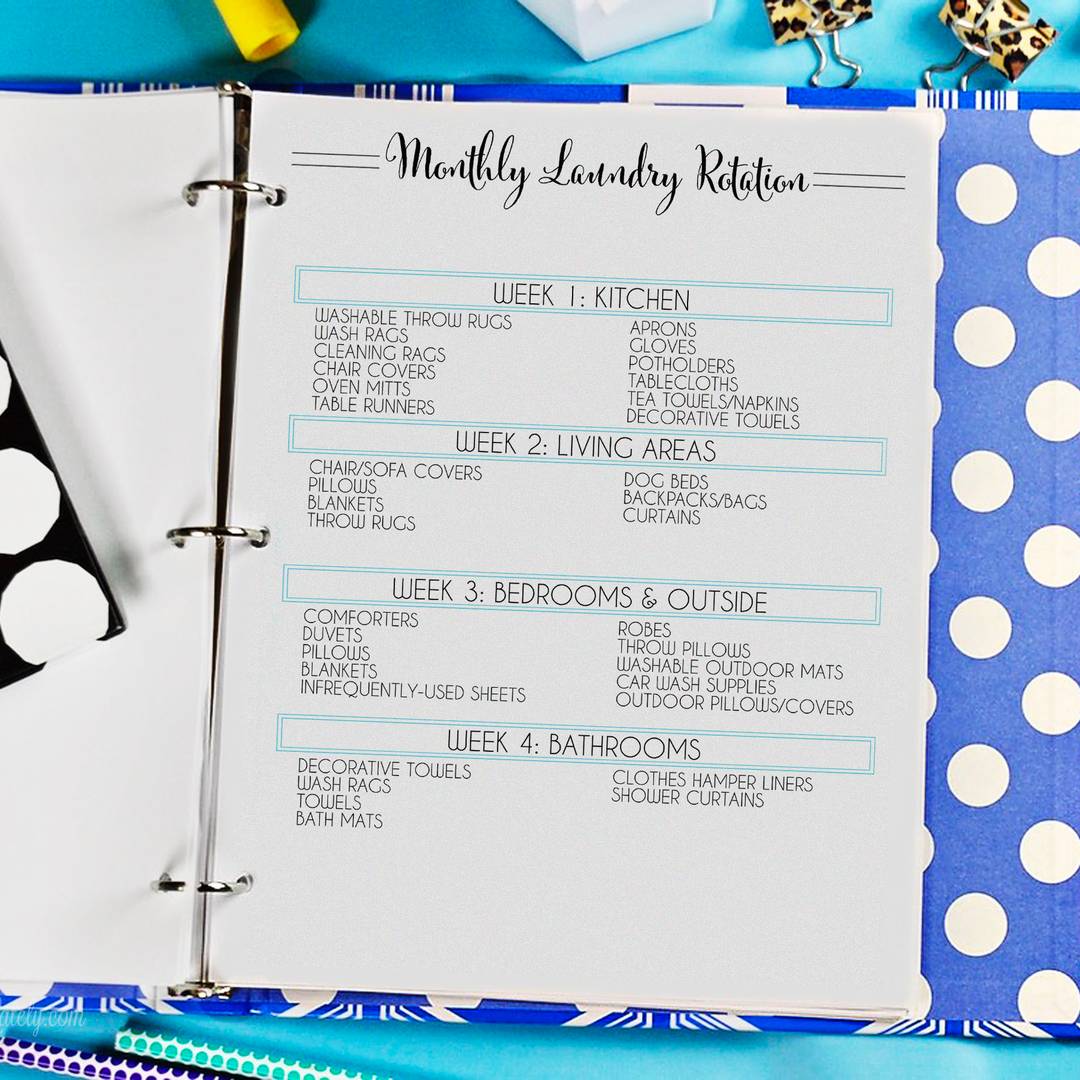 Monthly Laundry Rotation
WEEK 1: KITCHEN
WASHABLE THROW RUGS
WASH RAGS
CLEANING RAGS
CHAIR COVERS
OVEN MITTS
TABLE RUNNERS
APRONS
GLOVES
POTHOLDERS
TABLECLOTHS
TEA TOWELS/NAPKINS
DECORATIVE TOWELS
WEEK 2: LIVING AREAS
CHAIR/SOFA COVERS
PILLOWS
BLANKETS
THROW RUGS
DOG BEDS
BACKPACKS/BAGS
CURTAINS
WEEK 3: BEDROOMS & OUTSIDE
COMFORTERS
DUVETS
PILLOWS
BLANKETS
INFREQUENTLY-USED SHEETS
ROBES
THROW PILLOWS
WASHABLE OUTDOOR MATS
CAR WASH SUPPLIES
OUTDOOR PILLOWS/COVERS
WEEK 4: BATHROOMS
DECORATIVE TOWELS
WASH RAGS
TOWELS
BATH MATS
CLOTHES HAMPER LINERS
SHOWER CURTAINS